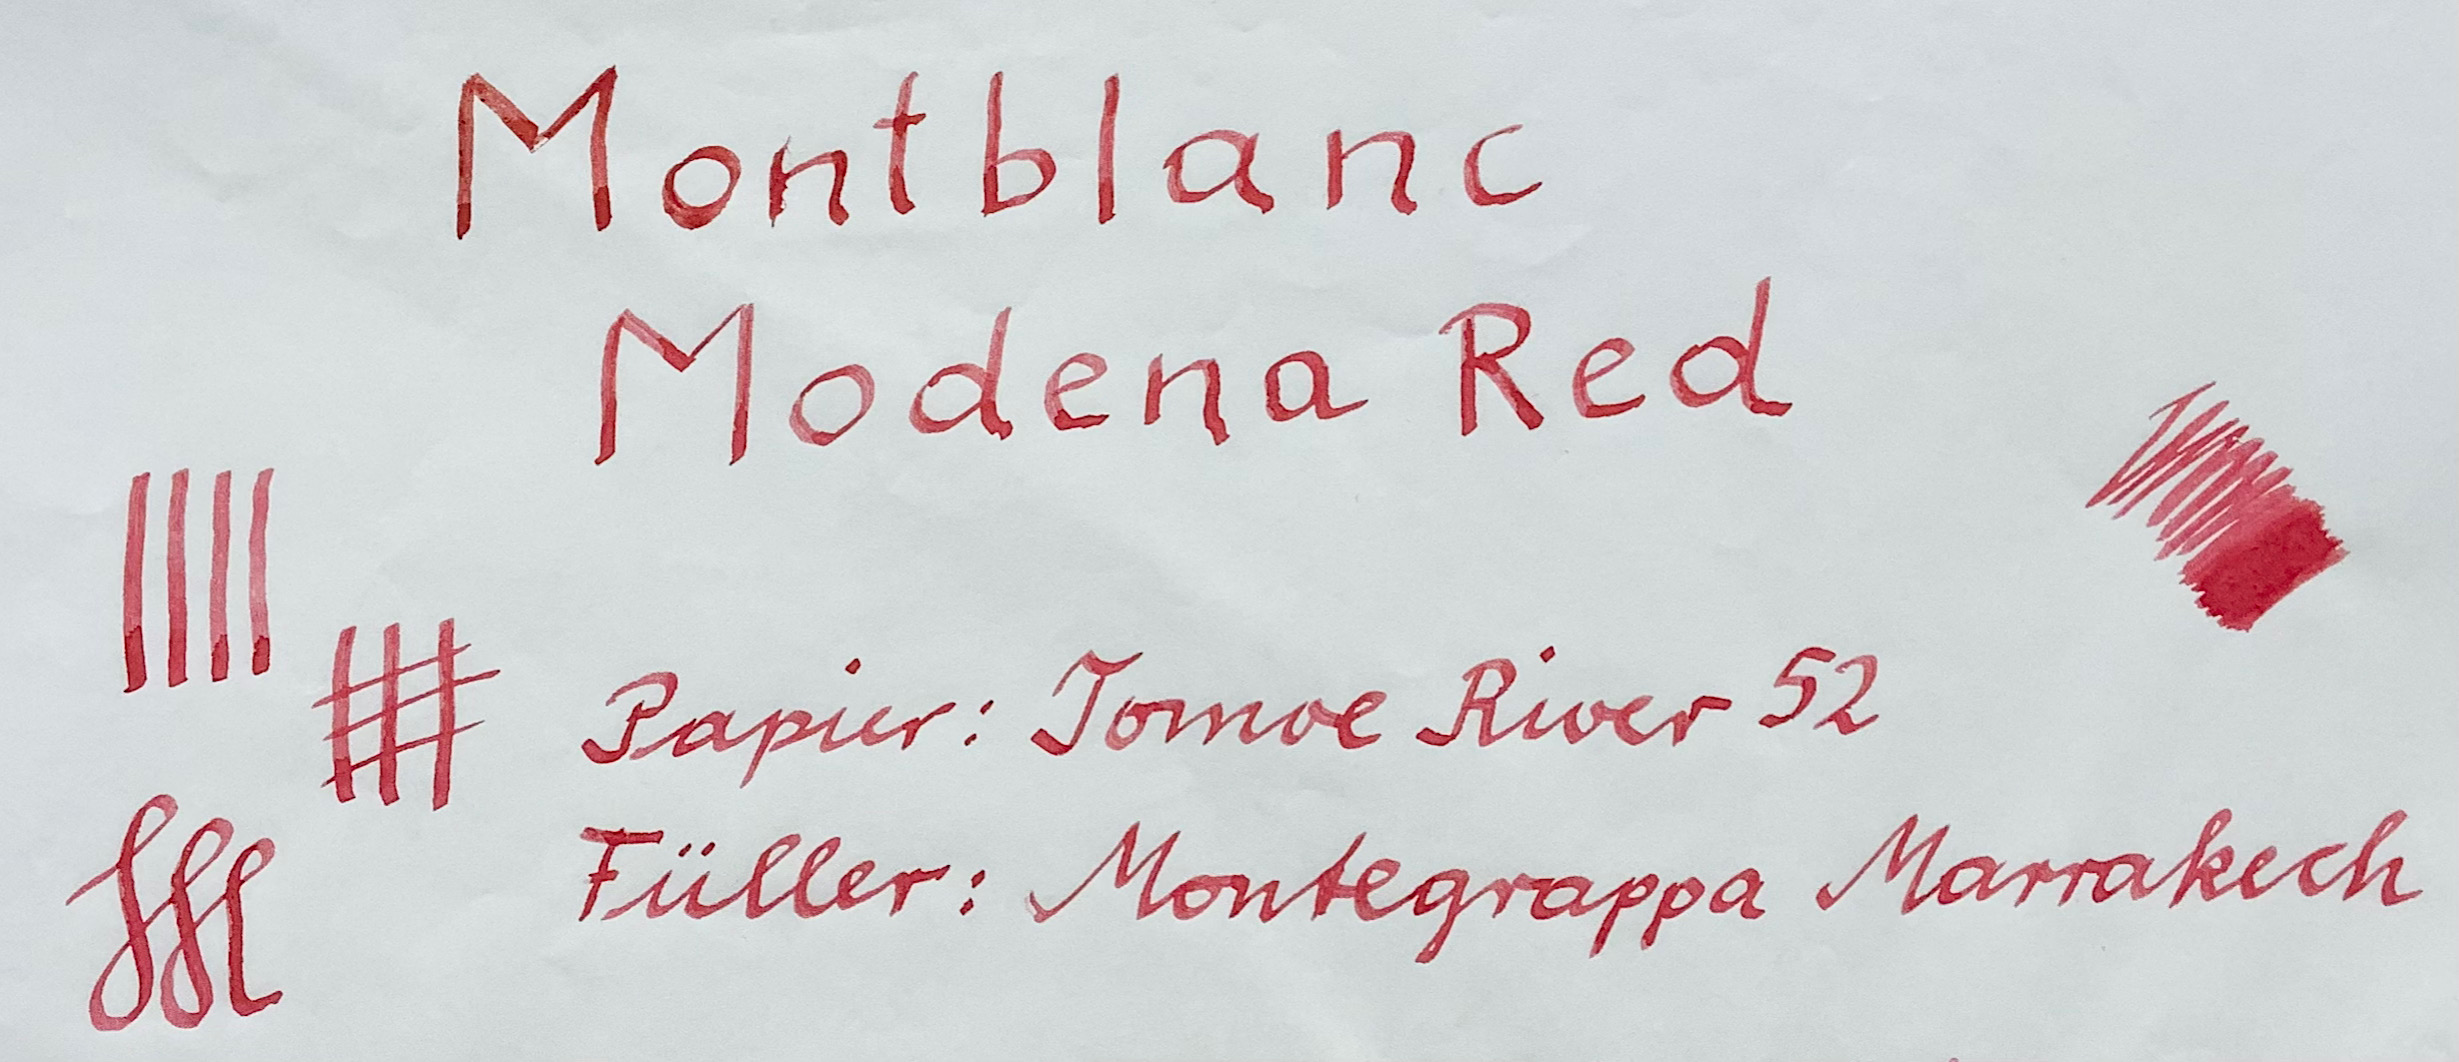 Montblanc
Modena Red
Papier: Tomoe River 52
Füller: Montegrappa Marrakech